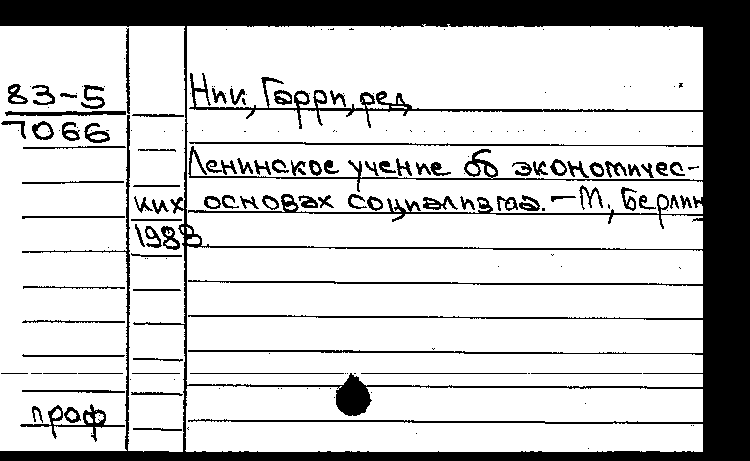 83-5
7066
Нии, Гарри, ред.
Ленинское учение об экономичес-
ких основах социализма. — М, Берлин
1983
проф